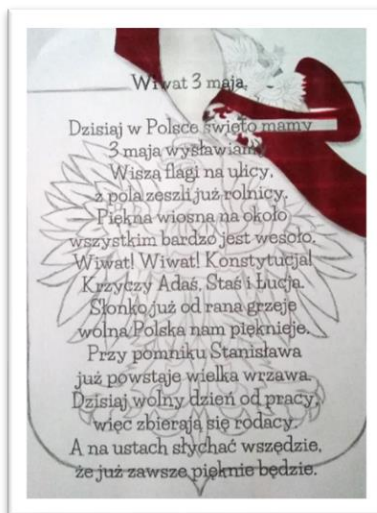 Wiwat 3 maja,
Dzisiaj w Polsce święto mamy
3 maja wysławiamy
Wiszą flagi na ulicy,
z pola zeszli już rolnicy.
Piękna wiosna na około
wszystkim bardzo jest wesoło.
Wiwat! Wiwat! Konstytucja!
Krzyczy Adaś, Staś i Łucja.
Słonko już od rana grzeje
wolna Polska nam pięknieje.
Przy pomniku Stanisława
już powstaje wielka wrzawa.
Dzisiaj wolny dzień od pracy,
więc zbierają się rodacy.
A na ustach słychać wszędzie,
że już zawsze pięknie będzie.